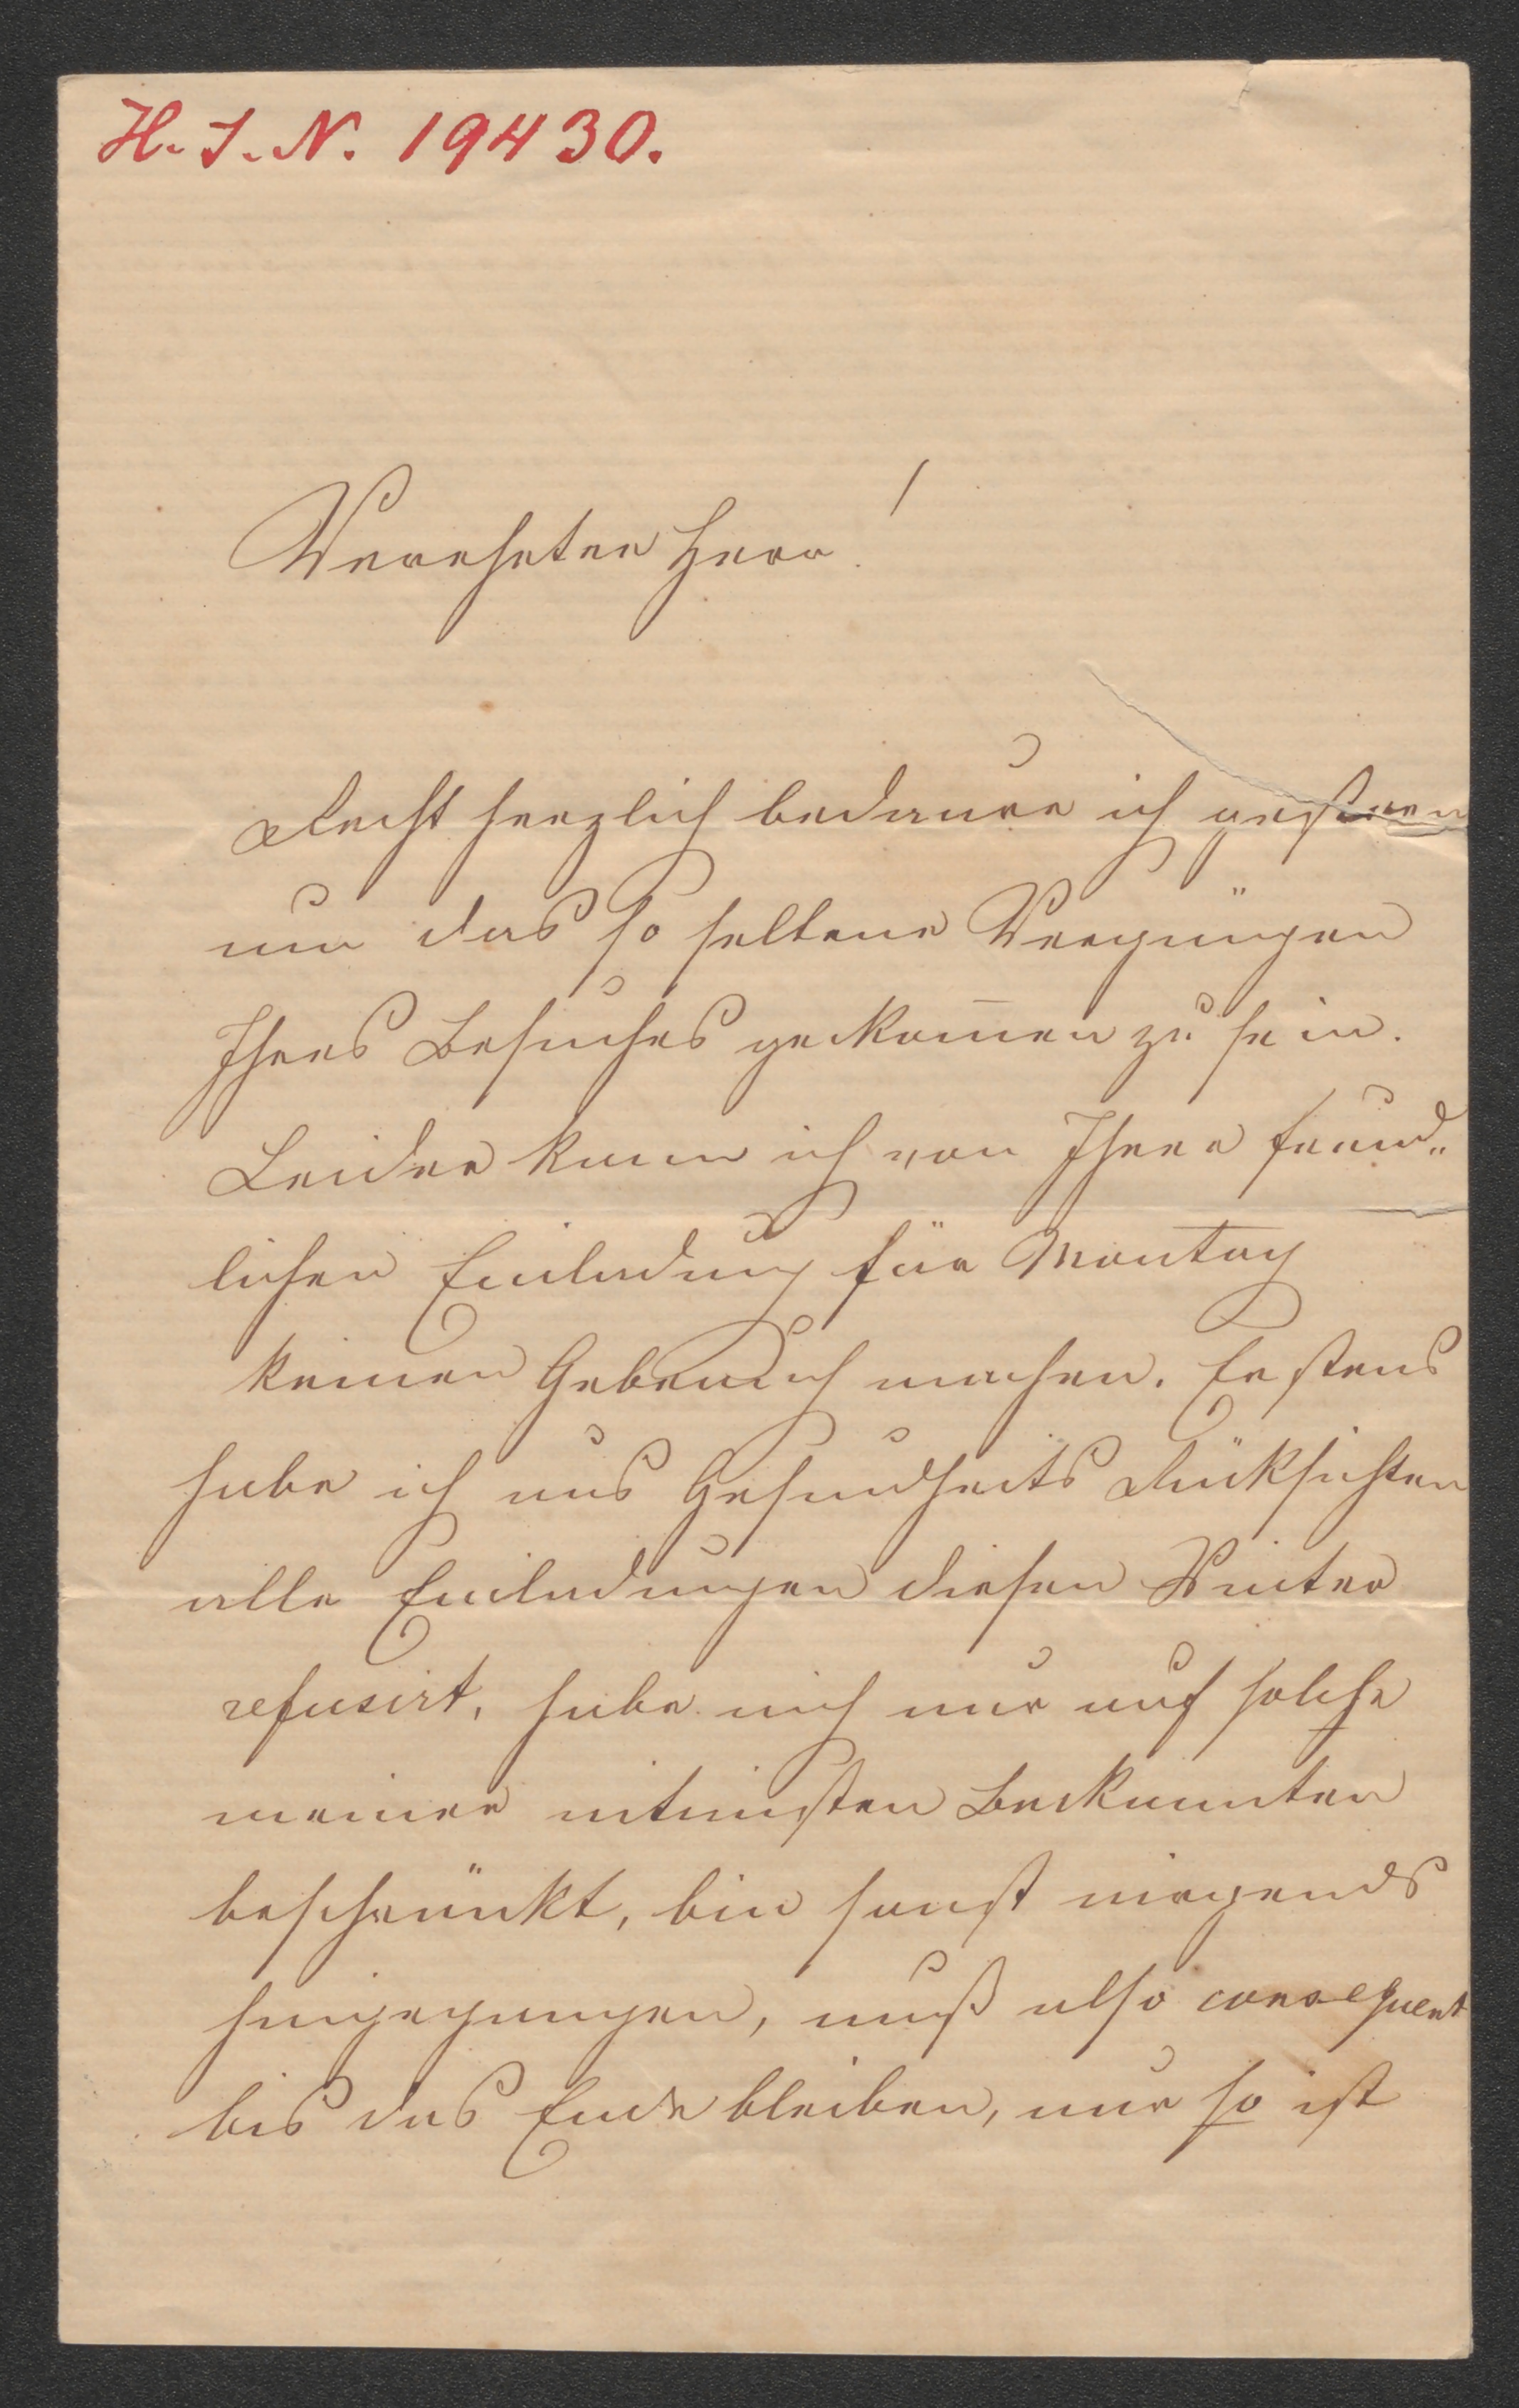 H. I. N. 19430.
Verehrter Herr!
Recht herzlich bedaure ich gestern
um das so seltene Vergnügen
Ihres Besuches gekom̄en zu sein.
Leider kann ich von Ihrer freund„
lichen Einladung für Montag
keinen Gebrauch machen. Erstens
habe ich aus Gesundheits Rücksichten
alle Einladungen diesen Winter
refusirt, habe mich nur auf solche
meiner intimsten Bekannten
beschränkt, bin sonst nirgends
hingegangen, muß also consequent
bis das Ende bleiben, nur so ist